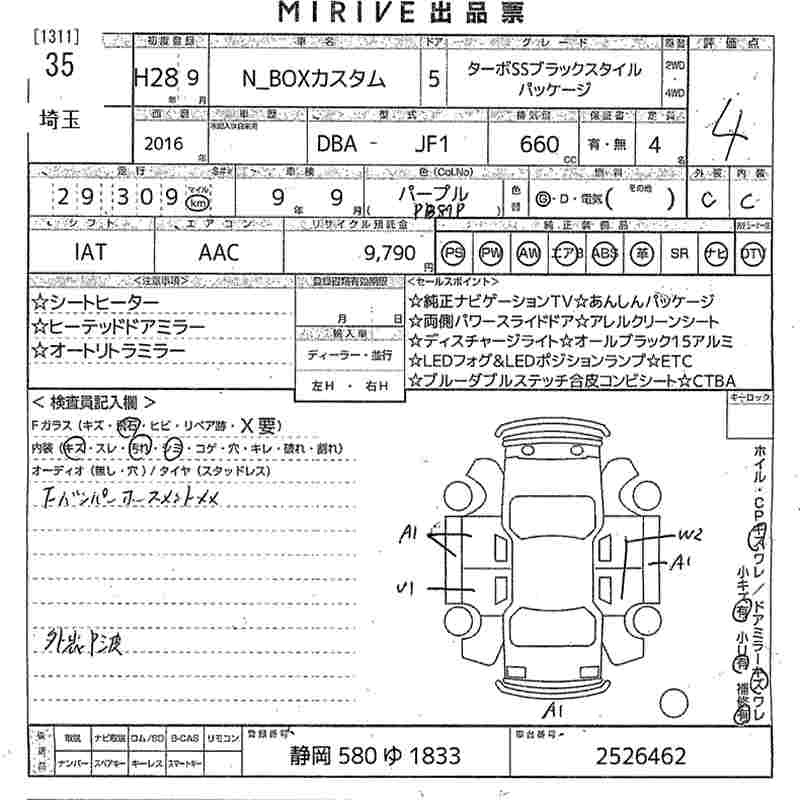 MIRIVE出品票
[1311]
35
埼玉
初度登録 車名 ドア グレード 評価点
H28 9 N_BOXカスタム 5 ターボSSブラックスタイル
パッケージ
2WD
4WD
年 月
4
西暦 車歴 型式 排気量 保証書 定員
2016 DBA - JF1 660 有・無 4
年 CC 名
走行 車検 色(Col.No) 燃料 外装 内装
29309 マイル km 9 9 パープル G・D・電気( その他 ) C C
年 月 ( PB81P )
シフト エアコン リサイクル預託金 純正装備品
IAT AAC 9,790 PS PW AW エアB ABS 革 SR ナビ DTV
円
<注意事項> 登録書類有効期限 <セールスポイント>
☆シートヒーター
☆ヒーテッドドアミラー
☆オートリトラミラー
月 日
輸入車
ディーラー・並行
左H ・ 右H
☆純正ナビゲーションTV☆あんしんパッケージ
☆両側パワースライドドア☆アレルクリーンシート
☆ディスチャージライト☆オールブラック15アルミ
☆LEDフォグ&LEDポジションランプ☆ETC
☆ブルーダブルステッチ合皮コンビシート☆CTBA
キーロック
< 検査員記入欄 >
Fガラス(キズ・飛石・ヒビ・リペア跡・X要)
内装(キズ・スレ・汚れ・シミ・コゲ・穴・キレ・破れ・割れ)
オーディオ(無し・穴)/タイヤ(スタッドレス)
A1
U1
W2
A1
A1
ホイル・CPキズワレ/ドアミラーキズワレ
小キズ有 小U有 補修有
取説 ナビ取説 ロム/SD B-CAS リモコン
ナンバー スペアキー キーレス スマートキー
登録番号
静岡 580 ゆ 1833
車台番号
2526462